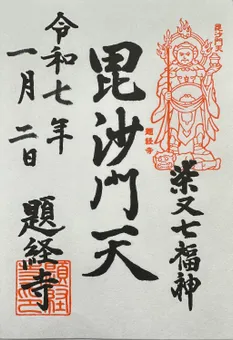 毘沙門天
題経寺
柴又七福神
毘沙門天
令和七年
一月二日
題経寺